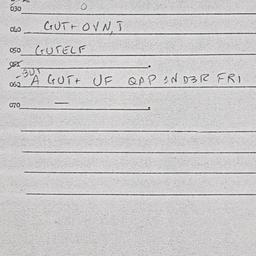 030
060 GUT+ OVN, T
050 GUTELF
BUT
060 A GUT+ UF QAP IND3R FRI
070 —